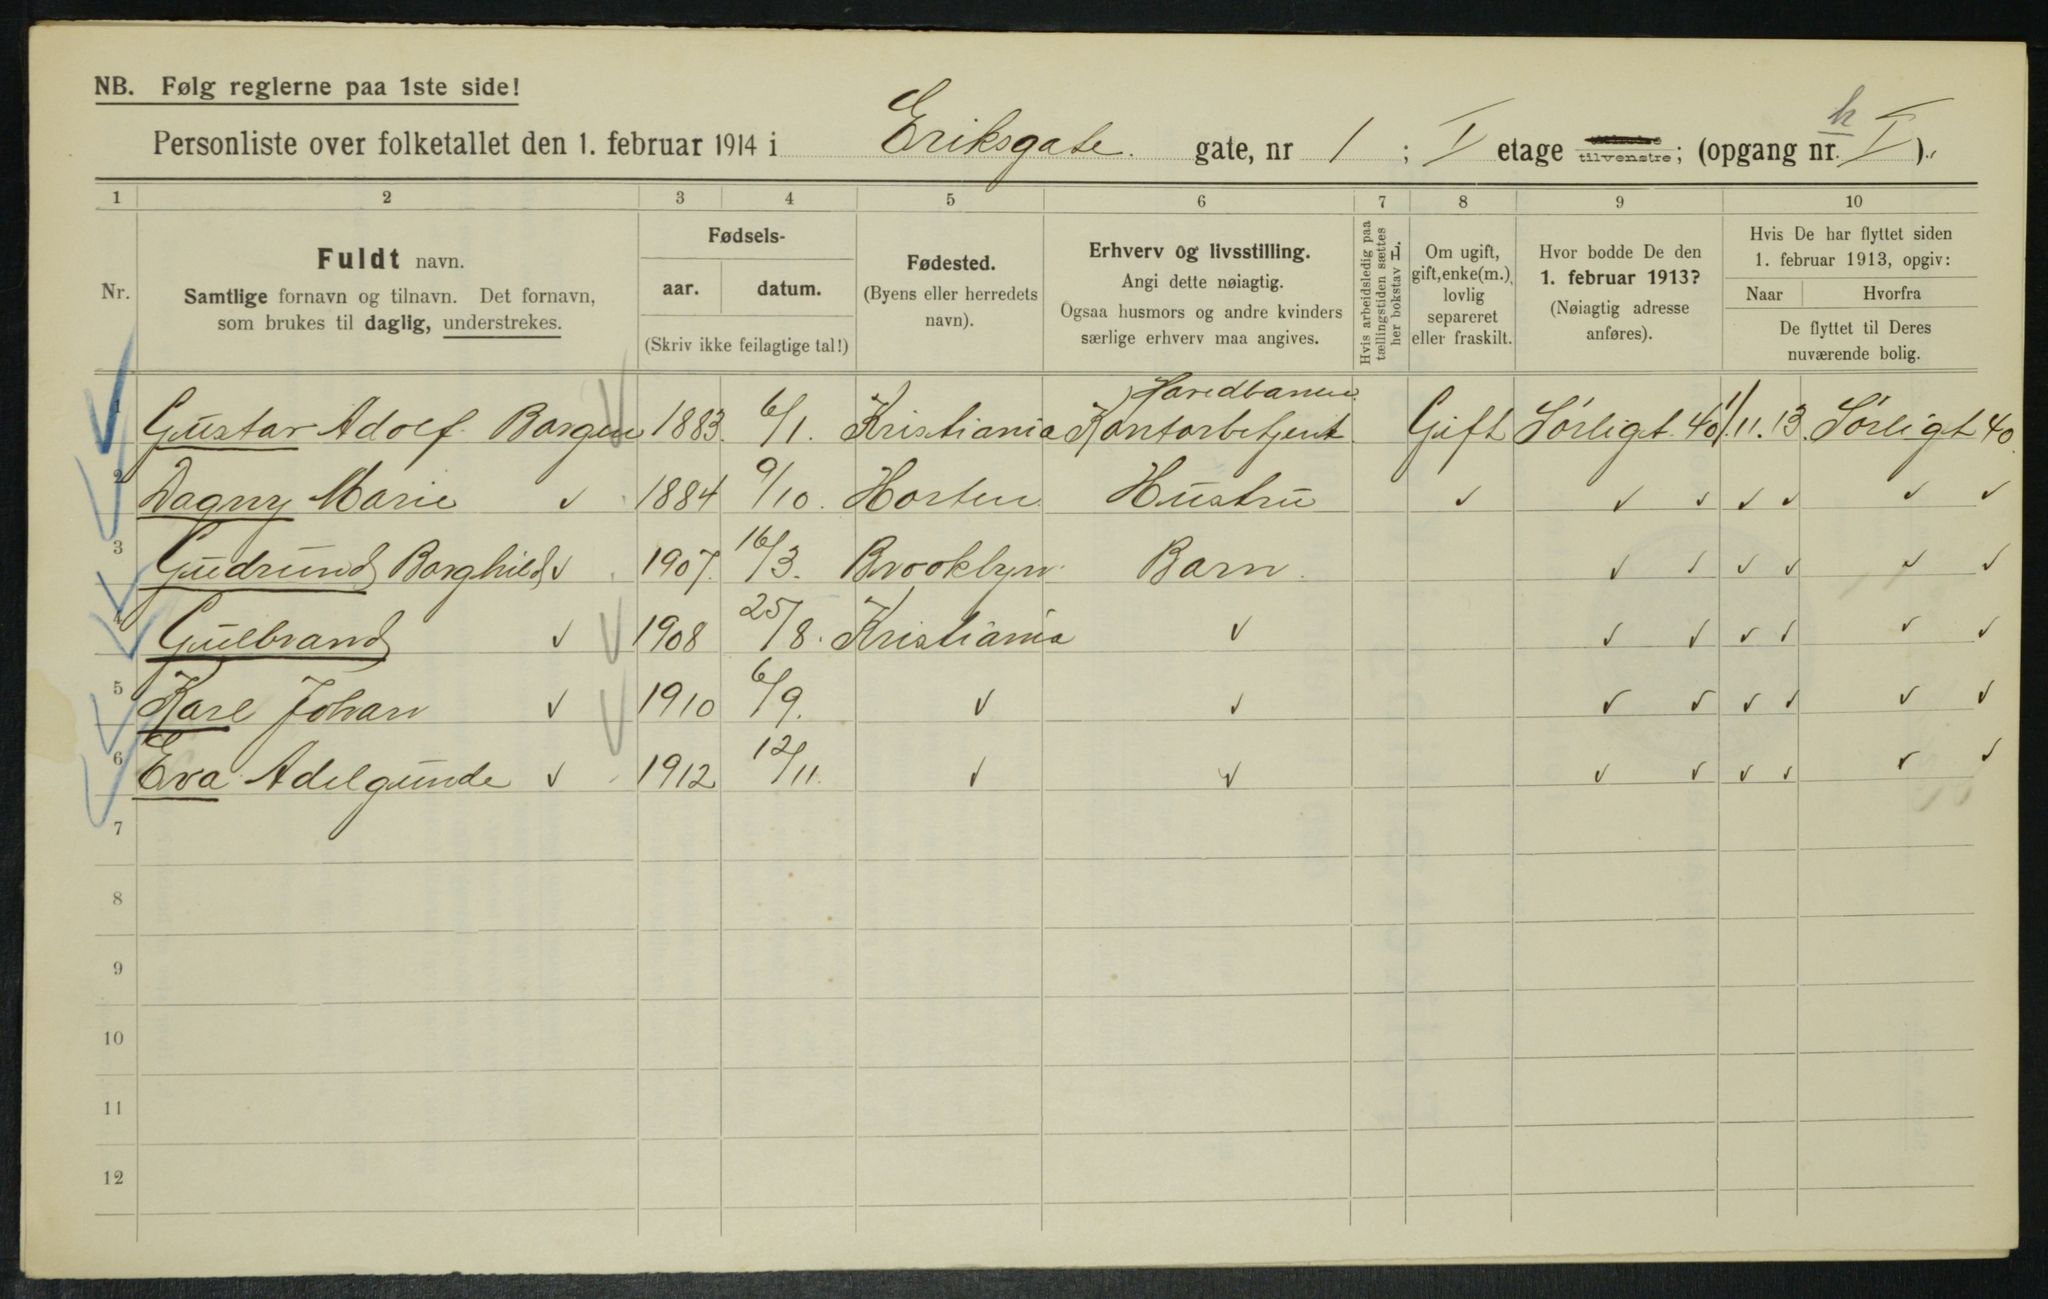 NB. Følg reglerne paa 1ste side!
Personliste over folketallet den 1. februar 1914 i Eriksgate. gate, nr 1 ; I etage tilvenstre; (opgang nr. I).
h
1 2 3 4 5 6 7 8 9 10
Nr.
Fuldt navn.
Samtlige fornavn og tilnavn. Det fornavn,
som brukes til daglig, understrekes.
Fødsels-
aar. datum.
(Skriv ikke feilagtige tal!)
Fødested.
(Byens eller herredets
navn).
Erhverv og livsstilling.
Angi dette nøiagtig.
Ogsaa husmors og andre kvinders
særlige erhverv maa angives.
Hvis arbeidsledig paa
tællingstiden sættes
her bokstav L.
Om ugift,
gift, enke(m.),
lovlig
separeret
eller fraskilt.
Hvor bodde De den
1. februar 1913?
(Nøiagtig adresse
anføres).
Hvis De har flyttet siden
1. februar 1913, opgiv:
Naar Hvorfra
De flyttet til Deres
nuværende bolig.
Hovedbanen
1 Gustav Adolf Borgen 1883. 6/1. Kristiania Kontorbetjent Gift Sørligt. 40 1/11.13. Sørligt 40.
2 Dagny Marie √ 1884 9/10. Horten Hustru √ √ √ √ √ √ √
3 Gudrund Borghild √ 1907. 16/3. Brooklyn. Barn. √ √ √ √ √ √
4 Gulbrand √ 1908 25/8. Kristiania √ √ √ √ √ √ √
5 Karl Johan √ 1910 6/9. √ √ √ √ √ √ √ √
6 Eva Adelgunde √ 1912 12/11. √ √ √ √ √ √ √ √
7
8
9
10
11
12